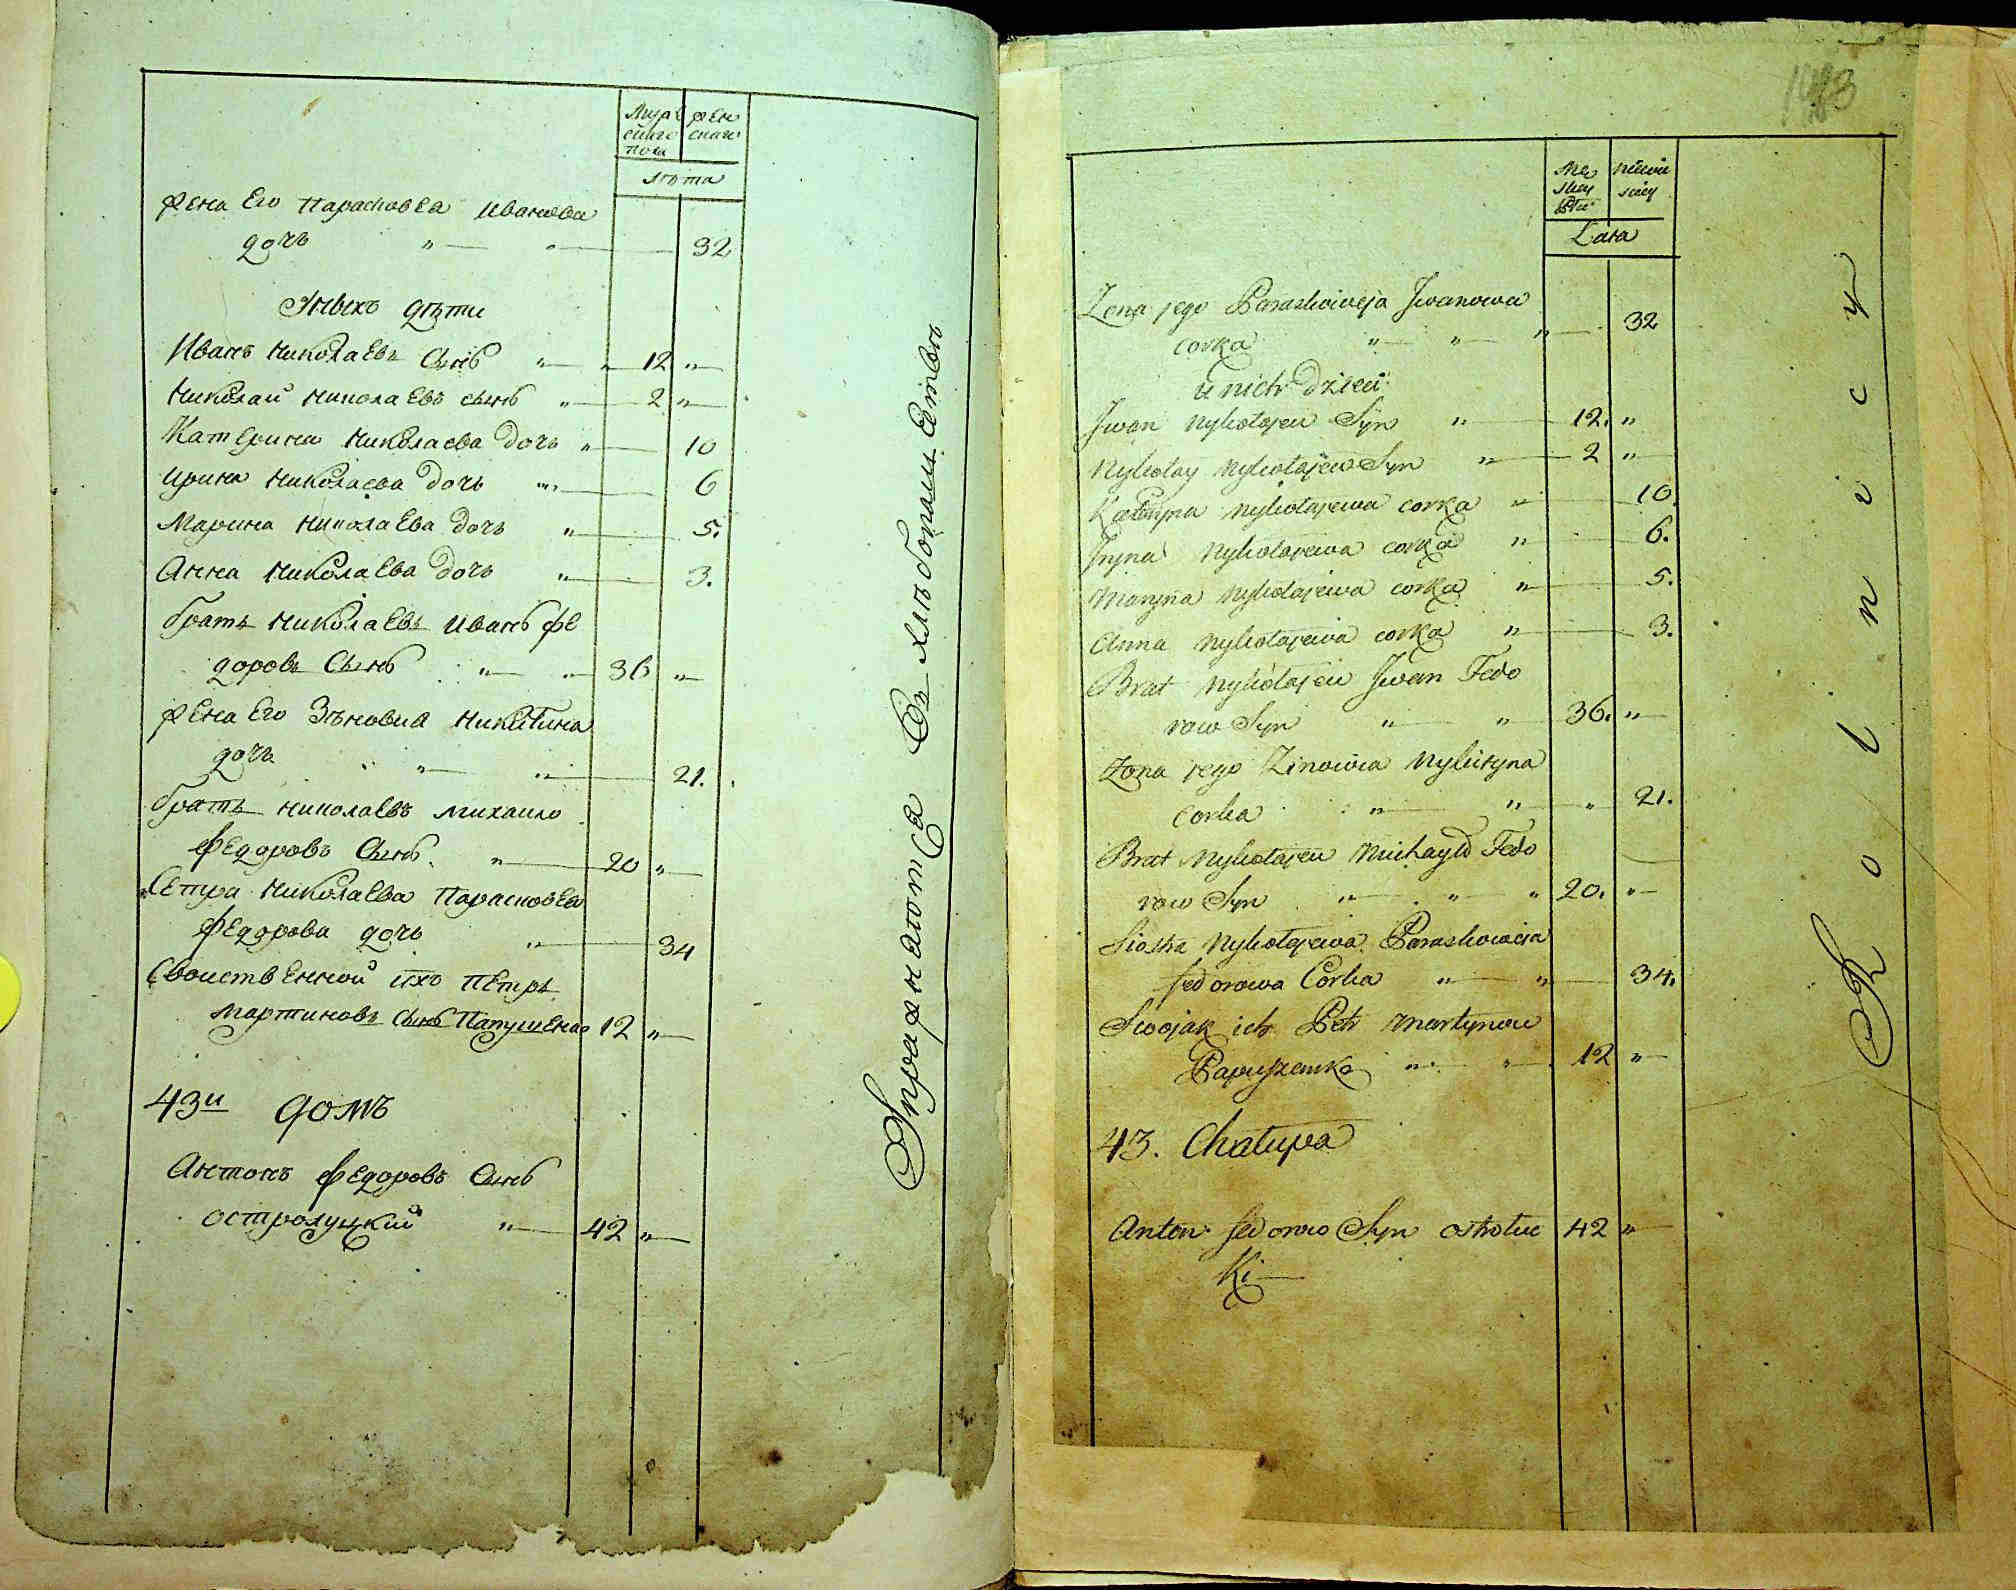 Мужескаго пола
женскаго
лѣта
Жена Его Парасковеа Иванова
дочъ " " 32
Уныхъ дѣти
Иванъ Николаевъ Сынъ " " 12 "
Николай Николаевъ сынъ " 2 "
Катерина Николаева дочь " 10
Ирина Николаева дочь " 6
Марина Николаева дочь " 5.
Анна Николаева дочь " 3.
братъ Николаевъ Иванъ Фе
доровъ Сынъ " " 36 "
Жена Его Зѣновиа Никитина
дочъ " " " 21.
братъ Николаевъ Михаило
Федоровъ Сынъ. " 20 "
Сестра Николаева Парасковеа
Федорова дочь " 34
Свойственной ихъ Петръ
Мартиновъ Сынъ Папушенко 12 "
43й домъ
Антонъ Федоровъ Сынъ
Остролуцкий " 42 "
Упражнаютса Въ хлѣбопашествѣ
Lata
Zona jego Paraskowieja Jwanowa
corka " " " 32
u nich dzieci
Jwan Nykołajew Syn " 12. "
Nykołay Nykołajew Syn " 2 "
Kateryna Nykołajewa corka " 10
Jryna Nykołajewa corka " 6.
Maryna Nykołajewa corka " 5.
Anna Nykołajewa corka " 3.
Brat Nykołajew Jwan Fedo
row Syn " " 36. "
Zona jego Zinowia Nykityna
corka " " " 21.
Brat Nykołajew Michayło Fedo
row Syn " " " 20. "
Siostra Nykołajewa Paraskowieja
fedorowa Corka " " 34.
Swojak ich Petr Martynow
Papuszenko " " 12 "
43. Chałupa
Anton fedorow Syn Ostrołuc 42 "
Ki
Rolnicy